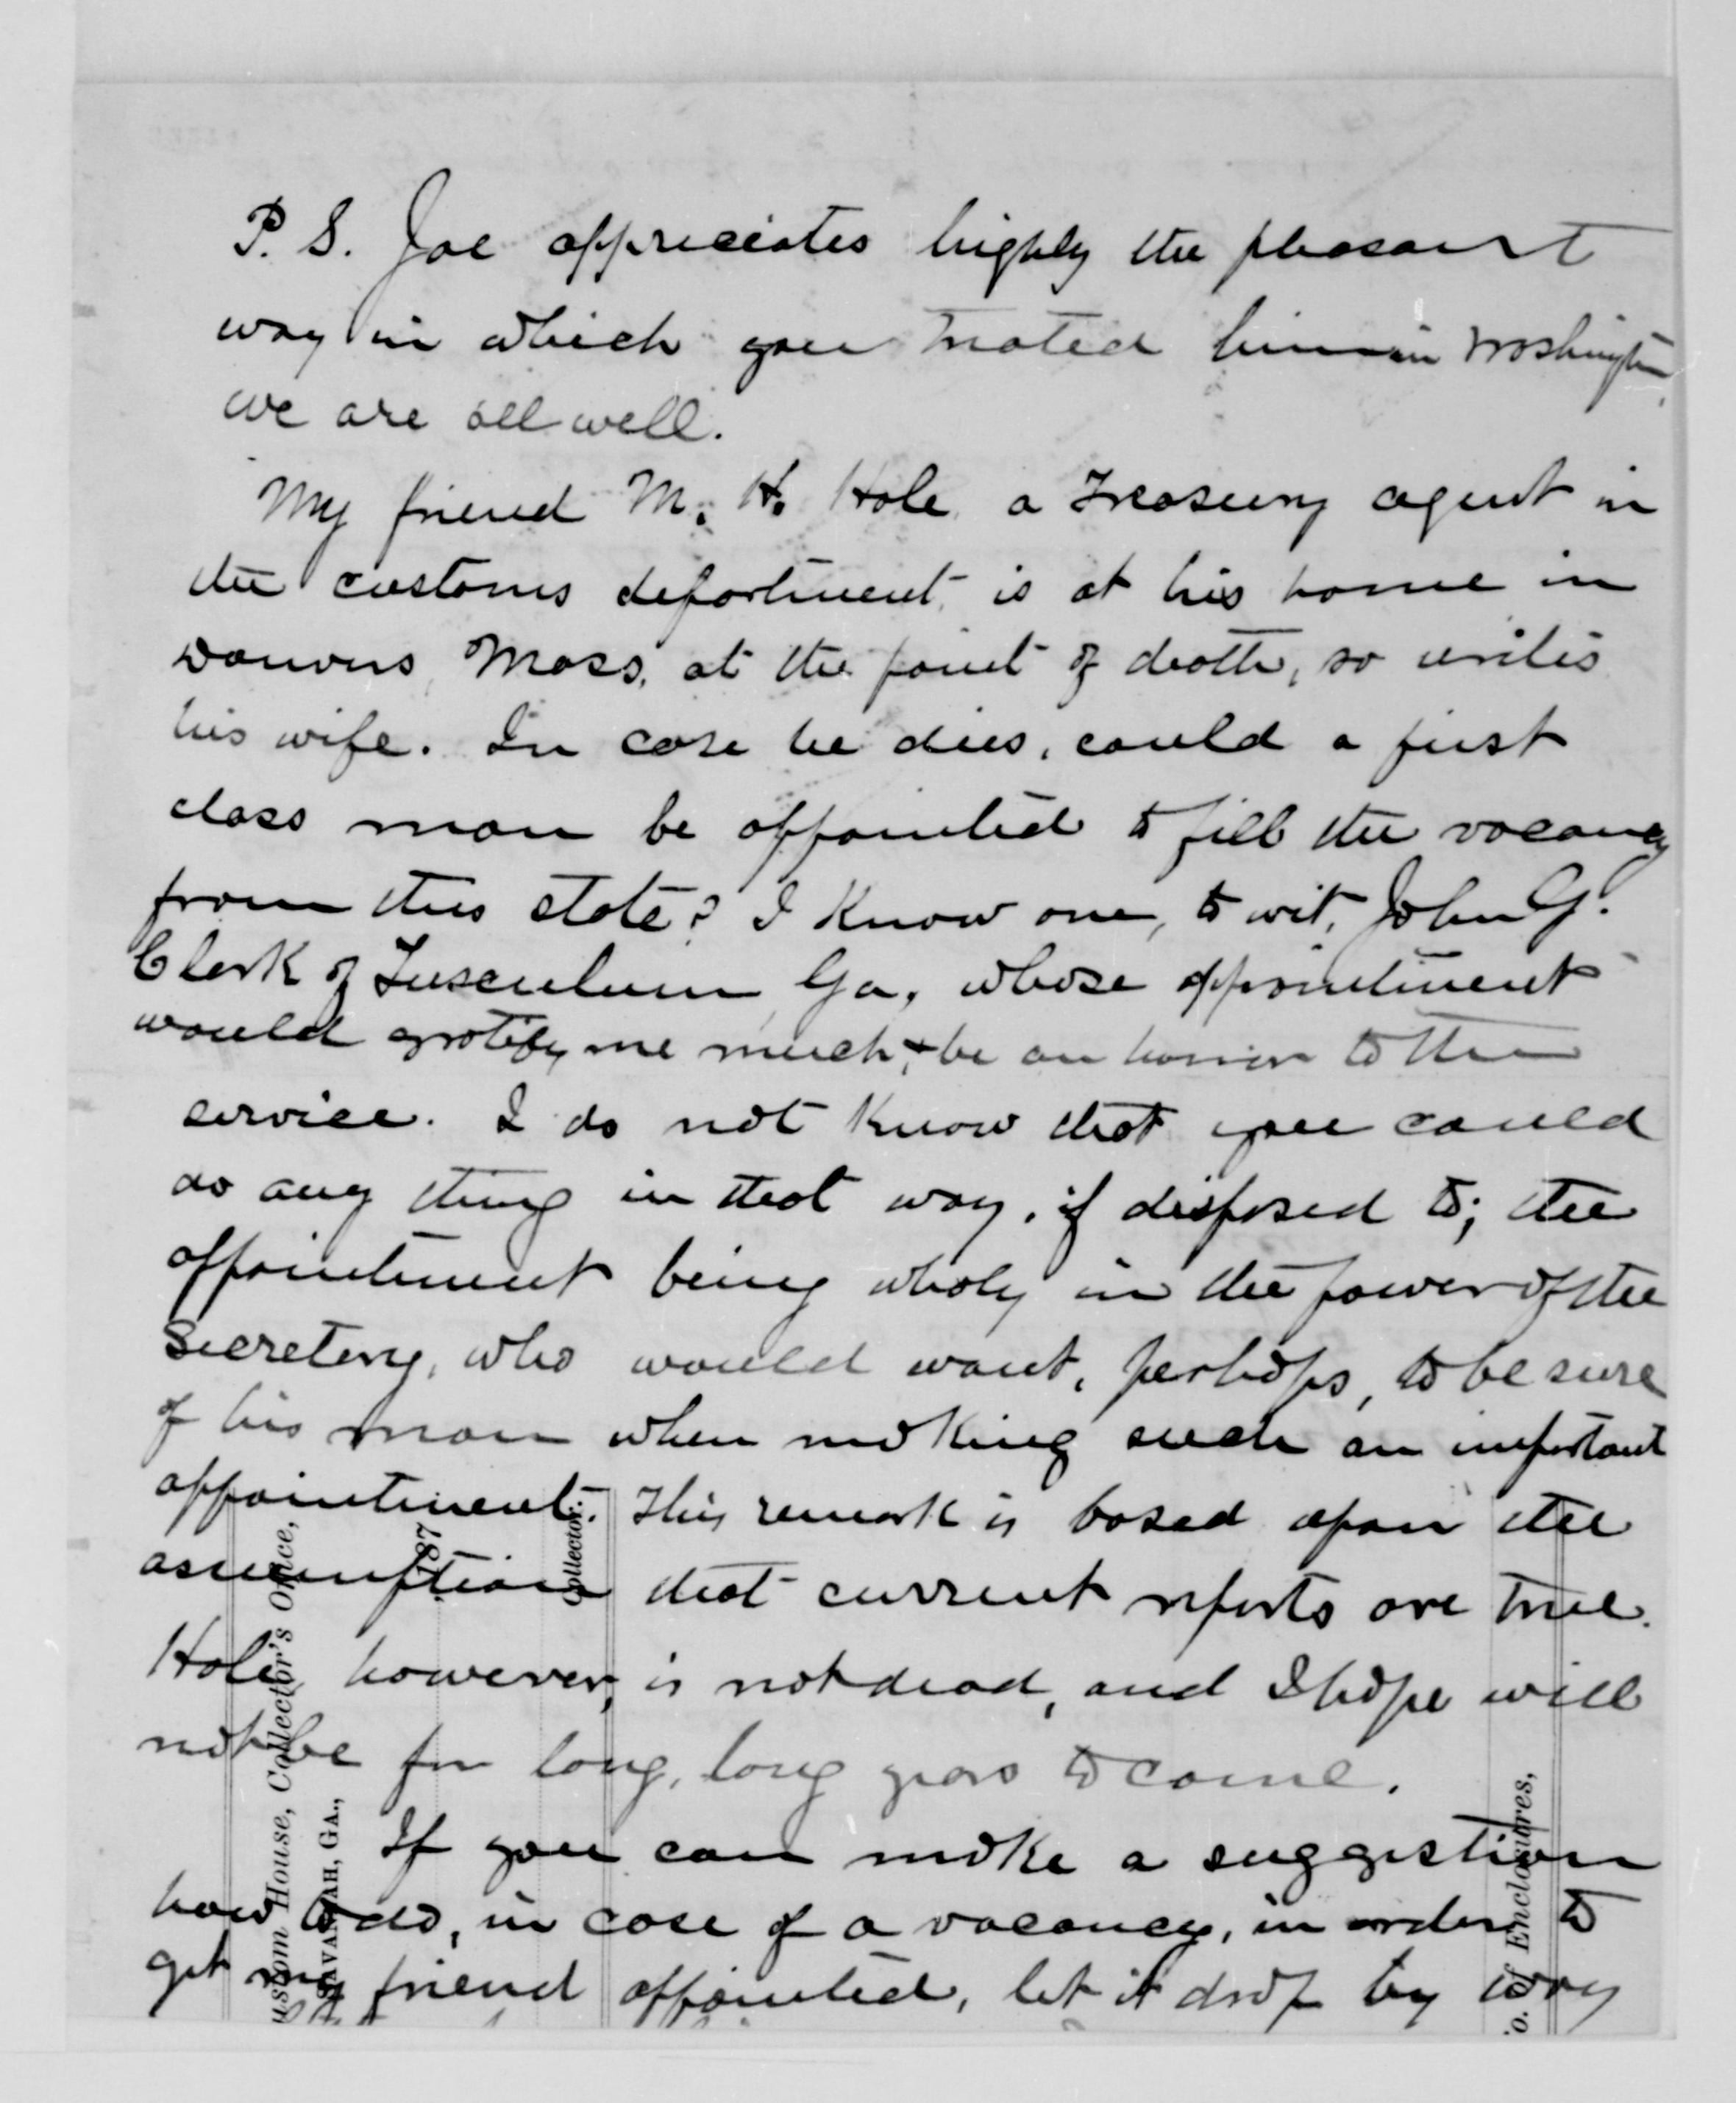 P. S. Joe appreciates highly the pleasant
way in which you treated him in Washington
we are all well.
My friend M. H. Hale a Treasury agent in
the customs department, is at his home in
Danvers, Mass, at the point of death, so writes
his wife. In case he dies, could a first
class man be appointed to fill the vacancy
from this state? I know one, to wit, John G.
Clark of Tusculum Ga, whose appointment
would gratify me much, & be an honor to the
service. I do not know that you could
do any thing in that way, if disposed to; the
appointment being wholy in the power of the
Secretary, who would want, perhaps, to be sure
of his man when making such an important
appointment. This remark is based upon the
assumption that current reports are true.
Hale, however, is not dead, and I hope will
not be for long, long years to come.
If you can make a suggestion
how to do, in case of a vacancy, in order to
get my friend appointed, let it drop by way
ustom House, Collector's Office,
SAVANNAH, GA.,
, 187
Collector.
o. of Enclosures,